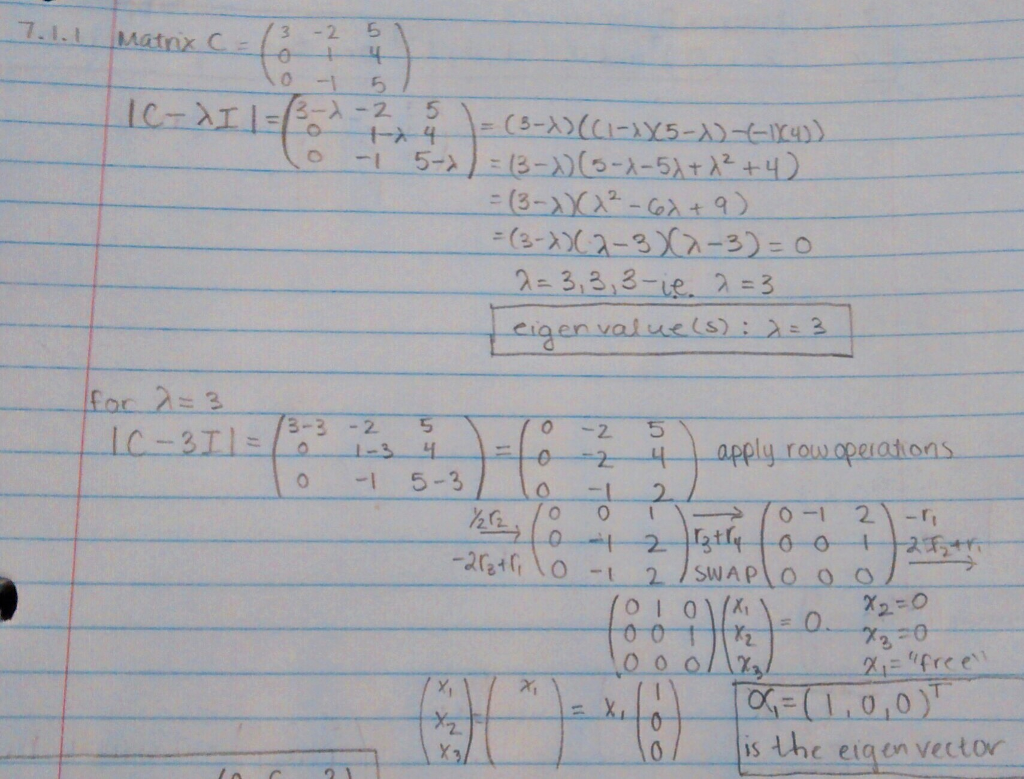 7.1.1 Matrix C = (3 -2 5
0 1 4
0 -1 5)
|C-λI| = (3-λ -2 5
0 1-λ 4
0 -1 5-λ) = (3-λ)((1-λ)(5-λ)-(-1)(4))
= (3-λ)(5-λ-5λ+λ²+4)
= (3-λ)(λ²-6λ+9)
= (3-λ)(λ-3)(λ-3) = 0
λ = 3,3,3 - i.e. λ = 3
eigenvalue(s): λ = 3
for λ = 3
|C-3I| = (3-3 -2 5
0 1-3 4
0 -1 5-3) = (0 -2 5
0 -2 4
0 -1 2) apply row operations
½r₂
-2r₃+r₁ → (0 0 1
0 -1 2
0 -1 2) → r₃+r₄
SWAP (0 -1 2
0 0 1
0 0 0) -r₁
2r₂+r₁ →
(0 1 0
0 0 1
0 0 0) (x₁
x₂
x₃) = 0. x₂=0
x₃=0
x₁="free"
(x₁
x₂
x₃) = (x₁) = x₁ (1
0
0)
α₁ = (1,0,0)ᵀ
is the eigenvector